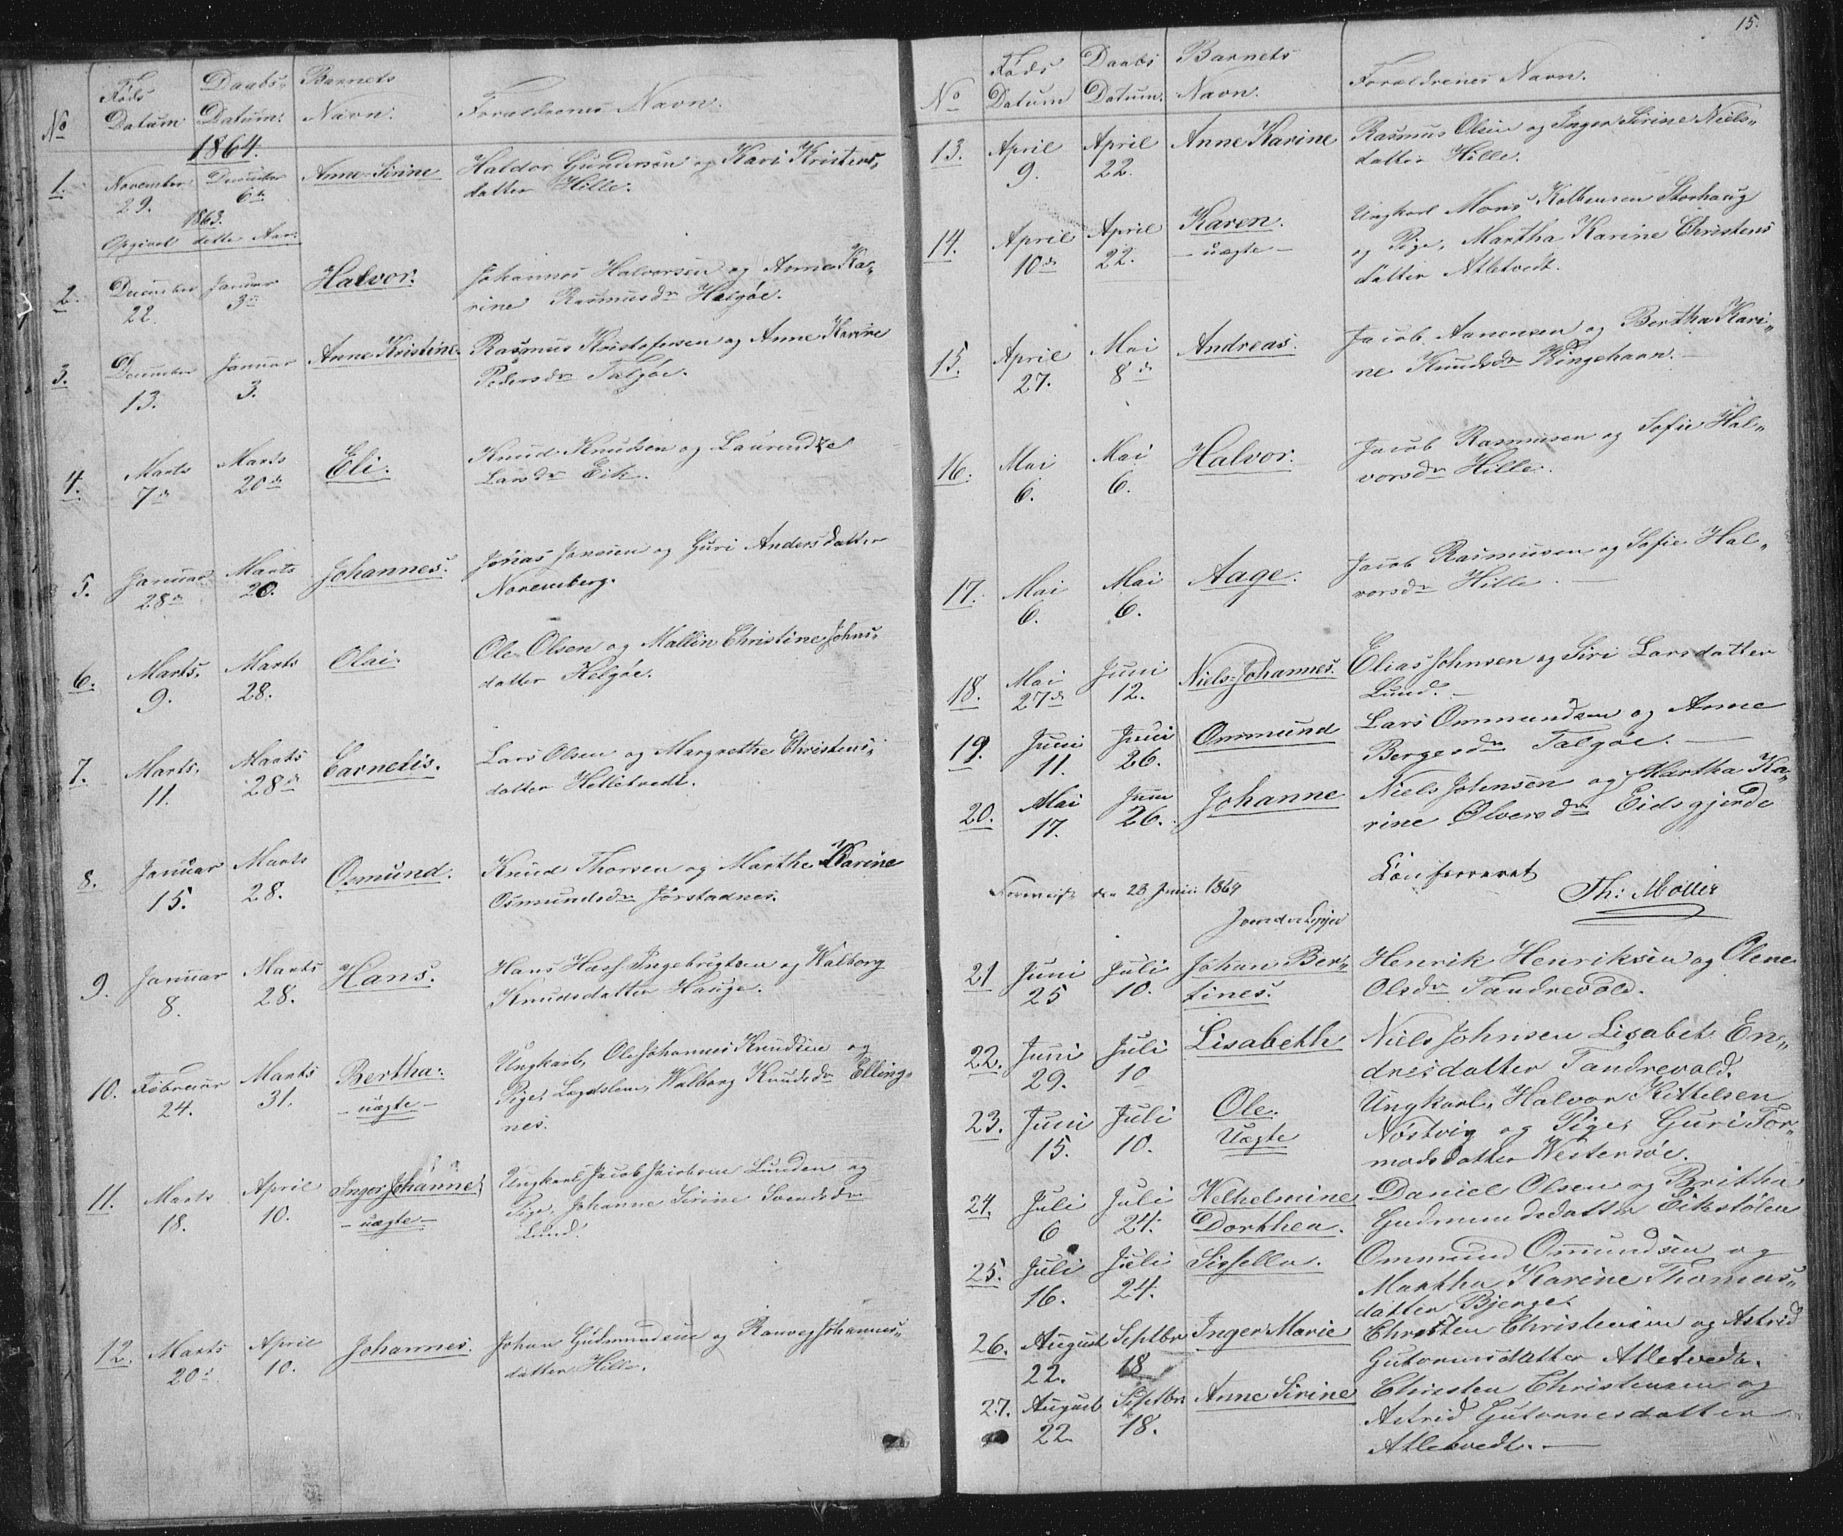 15.
No Føds Datum Daabs- Datum. Barnets Navn. Forældrenes Navn.
1864.
1. November 29. December 6te Anne Sirine Haldor Gundersen og Kari Kristens,,
datter Hille.
1863.
Opgivet dette Aar.
2. December 22. Januar 3die Halvor. Johannes Halvorsen og Anne Ka,,
rine Rasmusdr Helgøe.
3. December 13. Januar 3. Anne Kristine. Rasmus Kristofersen og Anne Karine
Pedersdr Talgøe.
4. Marts 7de Marts 20de Eli. Knud Knudsen og
Larsdr Eik.
5. Januar 28de Marts 20. Johannes. Jonas Jonsen og Guri Andersdatter
Noremberg.
6. Marts. 9. Marts 28. Olai. Ole Olsen og Mallin Christine Johns,,
datter Helgøe.
7. Marts. 11. Marts 28de Carnelis. Lars Olsen og Margrethe Christens,,
datter Helletvedt.
8. Januar 15. Marts 28. Osmund. Knud Thorsen og Marthe Karine
Osmundsdr Jørstadnes.
9. Januar 8. Marts 28. Hans. Hans Ingebrigtsen og Walborg
Knudsdatter Hauge.
10. Februar 24. Marts 31. Bertha. Ungkarl, Ole Johannes Knudsen og
- uægte - Pige, Walborg Knudsdr Elling,,
nes.
11. Marts 18. April 10. Inger Johanne, Ungkarl Jacob Jacobsen Lunden og
- uægte - Pige, Johanne Sirine Svendsdr
Lund.
12. Marts 20de April 10. Johannes. Johan Gudmundsen og Ranveg Johannes,,
datter Hille.
No Føds Datum Daabs Datum. Barnets Navn. Forældrenes Navn.
13. April 9. April 22. Anne Karine Rasmus Olsen og Inger Sirine Niels,,
datter Hille.
14. April 10de April 22. Karen. Ungkarl Mons Kolbensen Storhaug
- uægte - og Pige, Martha Karine Christens
datter Atletvedt.
15. April 27. Mai 8de Andreas. Jacob Aanensen og Bertha Kari,,
ne Knudsdr Kingehavn.
16. Mai 6. Mai 6. Halvor. Jacob Rasmusen og Sofie Hal,,
vorsdr Hille.
17. Mai 6. Mai 6. Aage. Jacob Rasmusen og Sofie Hal,,
vorsdr Hille.
18. Mai 27de Juni 12. Niels Johannes. Elias Johnsen og Siri Larsdatter
Lund.
19. Juni 11. Juni 26. Ommund Lars Ommundsen og Anne
Bergesdr Talgøe.
20. Mai 17. Juni 26. Johanne Niels Johnsen og Martha Ka,,
rine Ølversdr Eidsgjerde
Konfereret
Th: Møller
Forevist den 28 Juni 1864
21 Juni 25 Juli 10. Johan Ber,, Henrik Henriksen og Olene
tines. Olsdr Tandrevold.
22. Juni 29. Juli 10 Lisabeth Niels Johnsen Lisabet En,,
dresdatter Tandrevold.
23. Juni 15. Juli 10. Ole. Ungkarl, Halvor Kittelsen
Uægte Nøstvig og Pige, Guri Tor,,
modsdatter Vestersøe.
24. Juli 6 Juli 24. Welhelmine Daniel Olsen og Britha
Dorthea. Gudmundsdatter Eikstølen
25. Juli 16. Juli 24. Sissella. Ommund Ommundsen og
Martha Karine Thomas,,
datter Bjerge.
26. August 22. Septbr 18 Inger Marie Christen Christensen og Astrid
Gutormsdatter Atletvedt.
27. August 22. Septbr 18. Anne Sirine Christen Christensen og
Astrid Gutormesdatter
Atletvedt.